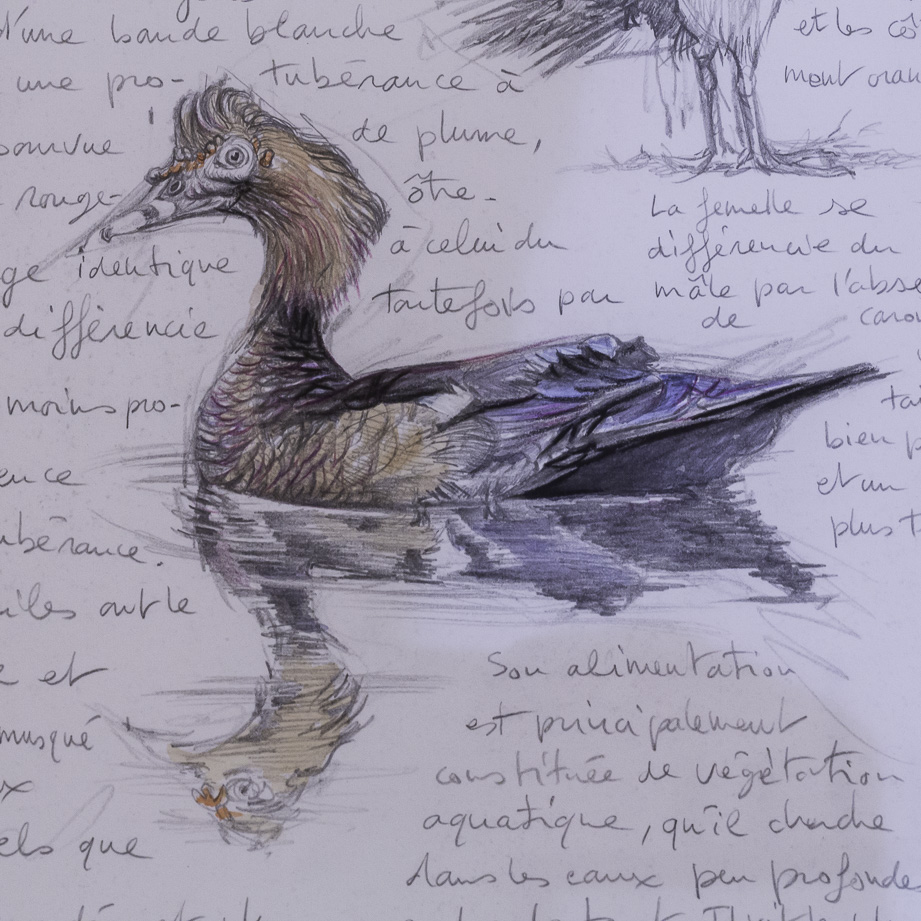 d'une bande blanche
une pro- tubérance à
de plume,
rouge- ôtre.
à celui du
ge identique
toutefois par
différencie
moins pro-
ence
ubérance.
iles ont le
e et
musqué
ux
els que
et les cô
mont oran
La femelle se
différencie du
mâle par l'abse
de caron
ta
bien p
et un
plus t
Son alimentation
est principalement
constituée de végétation
aquatique, qu'il cherche
dans les eaux peu profonde